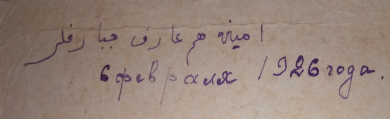 امینه هم عارف جبارفلر
6 февраля 1926 года.